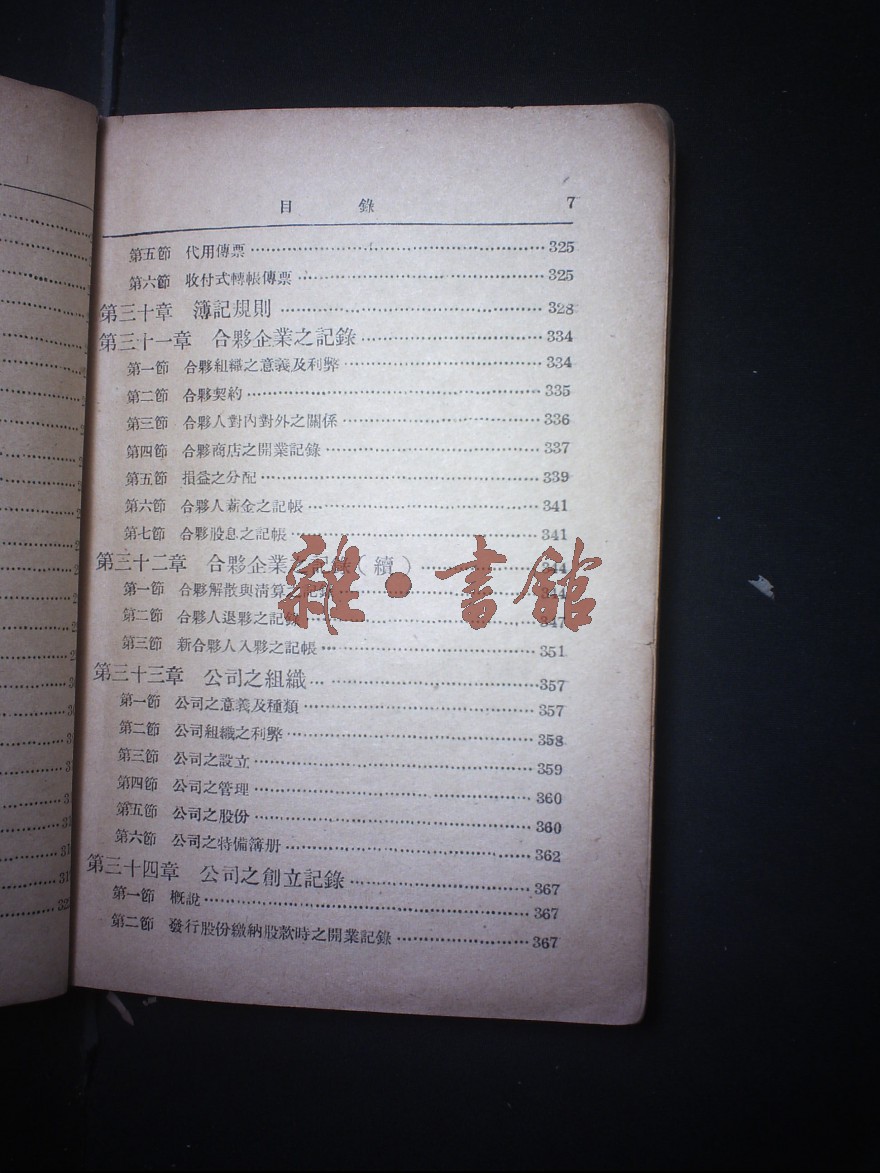 目　錄　7
第五節　代用傳票……325
第六節　收付式轉帳傳票……325
第三十章　簿記規則……328
第三十一章　合夥企業之記錄……334
第一節　合夥組織之意義及利弊……334
第二節　合夥契約……335
第三節　合夥人對內對外之關係……336
第四節　合夥商店之開業記錄……337
第五節　損益之分配……339
第六節　合夥人薪金之記帳……341
第七節　合夥股息之記帳……341
第三十二章　合夥企業之記錄（續）……344
第一節　合夥解散與清算之記錄……344
第二節　合夥人退夥之記錄……347
第三節　新合夥人入夥之記帳……351
第三十三章　公司之組織……357
第一節　公司之意義及種類……357
第二節　公司組織之利弊……358
第三節　公司之設立……359
第四節　公司之管理……360
第五節　公司之股份……360
第六節　公司之特備簿册……362
第三十四章　公司之創立記錄……367
第一節　概說……367
第二節　發行股份繳納股款時之開業記錄……367
雜·書館